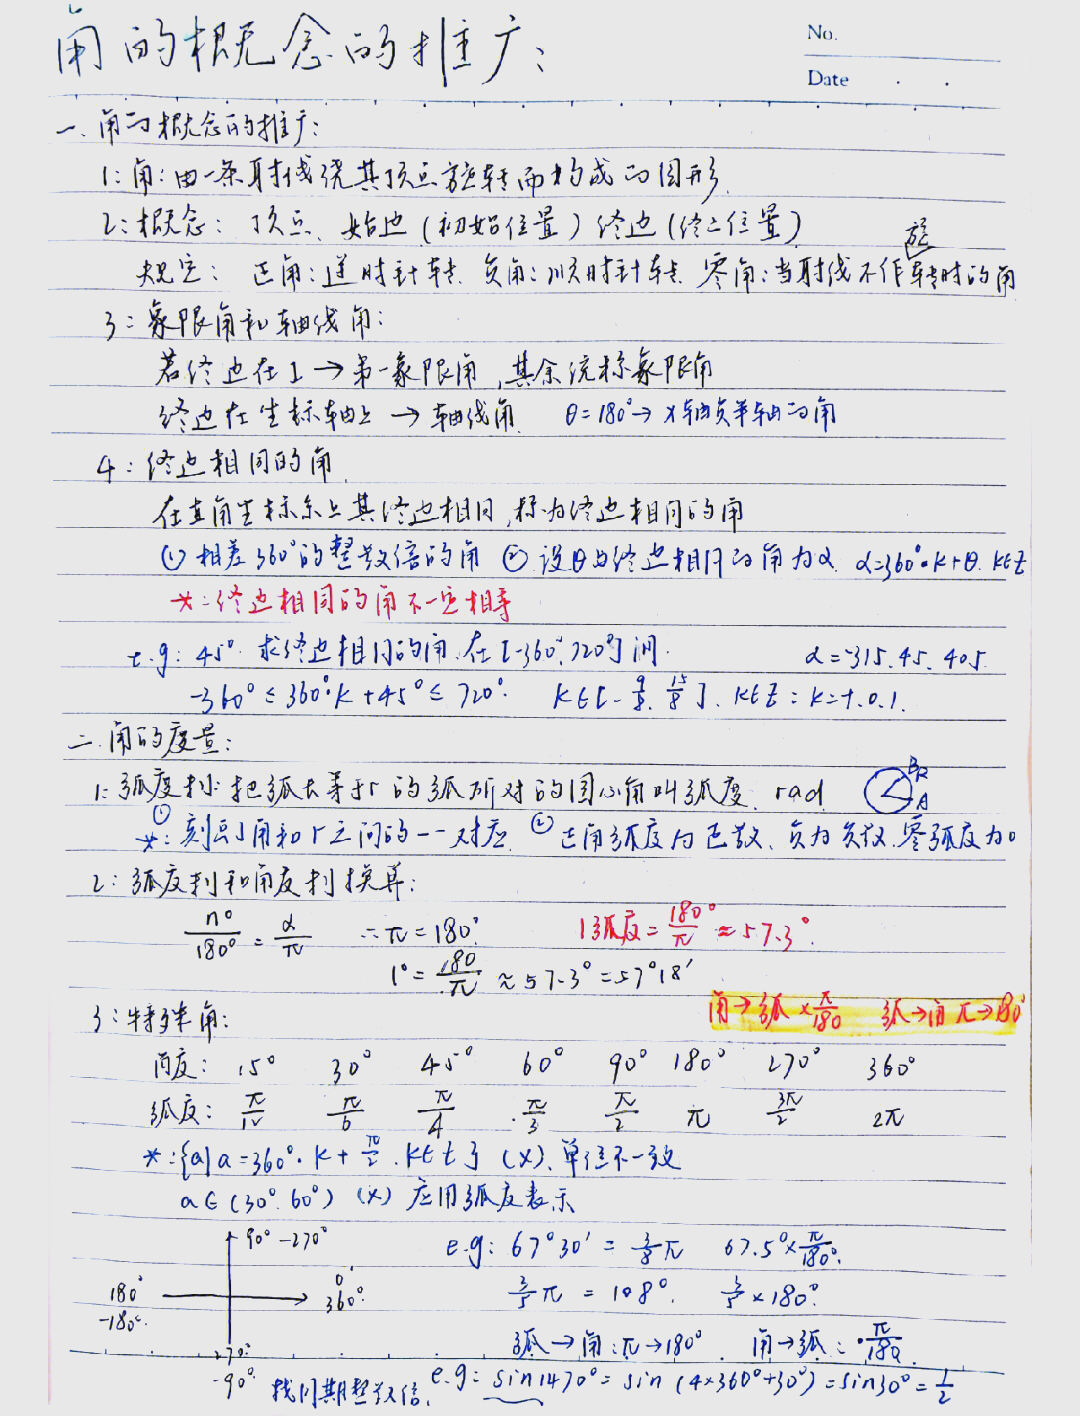 角的概念的推广:
No.
Date
一、角的概念的推广:
1:角:由一条射线绕其顶点旋转而构成的图形
2:概念: 顶点、始边(初始位置)终边(终止位置)
旋
规定: 正角:逆时针转. 负角:顺时针转. 零角:当射线不作转时的角
3:象限角和轴线角:
若终边在1→第一象限角,其余统称象限角
终边在坐标轴上→轴线角. θ=180°→x轴负半轴的角
4:终边相同的角
在直角坐标系上其终边相同,称为终边相同的角
①相差360°的整数倍的角 ②设θ与终边相同的角为α. α=360°·k+θ. k∈Z
*:终边相同的角不一定相等
e.g: 45° 求终边相同的角.在[-360°,720°]间. α=-315. 45. 405.
-360°≤360°k+45°≤720°. k∈[-9/8. 15/8]. k∈Z: k=-1.0.1.
二.角的度量:
1:弧度制:把弧长等于r的弧所对的圆心角叫弧度. rad
B R
A
①
*:刻画了角和r之间的一一对应. ②正角弧度为正数、负为负数.零弧度为0
2:弧度制和角度制换算:
n°/180° = α/π ∴π=180°. 1弧度=180°/π≈57.3°.
1°=180/π≈57.3°=57°18′
角→弧×π/180 弧→角 π→180°
3:特殊角:
角度: 15° 30° 45° 60° 90° 180° 270° 360°
弧度: π/12 π/6 π/4 π/3 π/2 π 3π/2 2π
*:{a|a=360°·k+π/2.k∈Z} (×).单位不一致
a∈(30°.60°) (×) 应用弧度表示
90° -270°
e.g: 67°30′=3/8π 67.5°×π/180°.
180°
-180°.
0°
360°.
3/5π=108°. 3/5×180°.
弧→角:π→180° 角→弧:·π/180.
270°.
-90°.
找同期整数倍.
e.g: sin1470°=sin(4×360°+30°)=sin30°=1/2